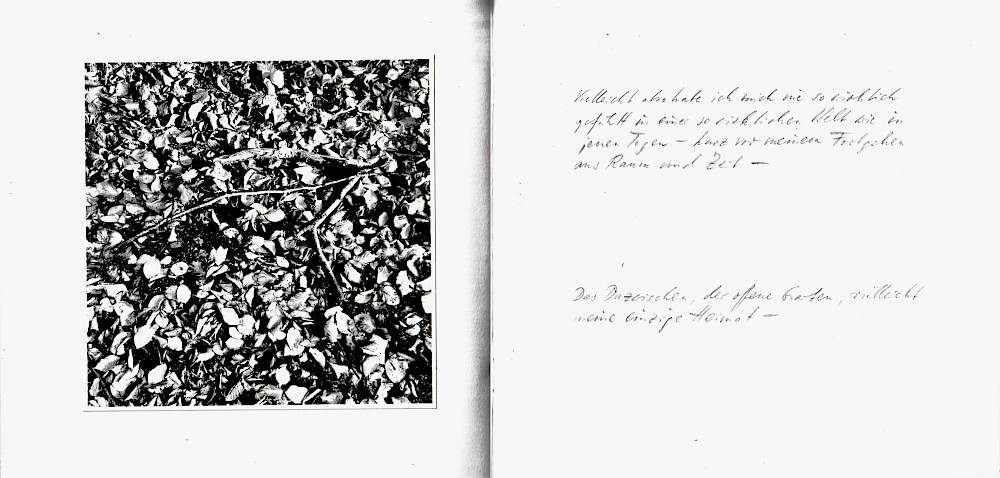 Vielleicht also habe ich mich nie so wirklich
gefühlt in einer so wirklichen Welt wie in
jenen Tagen – kurz vor meinem Fortgehen
aus Raum und Zeit –
Das Dazwischen, der offene Graben, vielleicht
meine einzige Heimat –